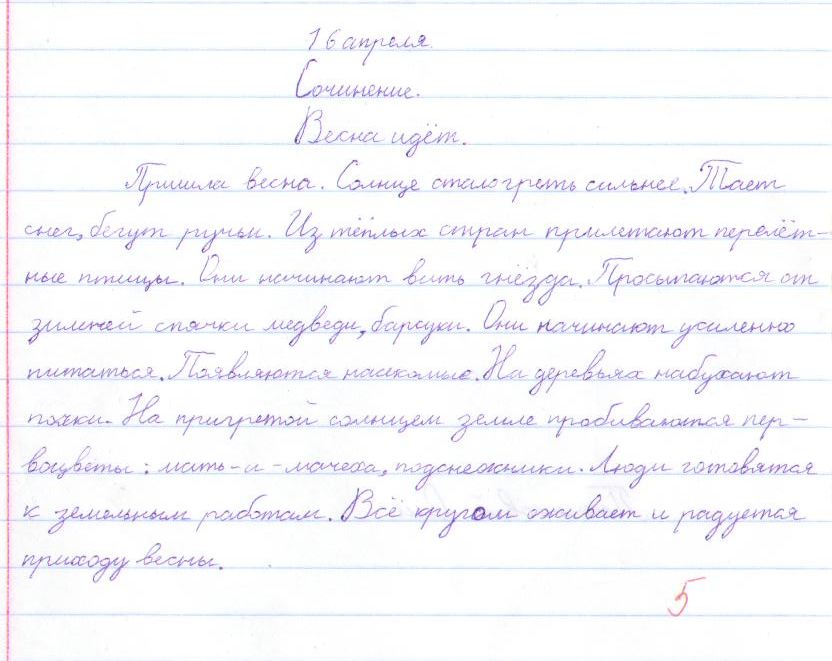 16 апреля.
Сочинение.
Весна идёт.
Пришла весна. Солнце стало греть сильнее. Тает
снег, бегут ручьи. Из тёплых стран прилетают перелёт-
ные птицы. Они начинают вить гнёзда. Просыпаются от
зимней спячки медведи, барсуки. Они начинают усиленно
питаться. Появляются насекомые. На деревьях набухают
почки. На пригретой солнцем земле пробиваются пер-
воцветы: мать-и-мачеха, подснежники. Люди готовятся
к земельным работам. Всё кругом оживает и радуется
приходу весны.
5